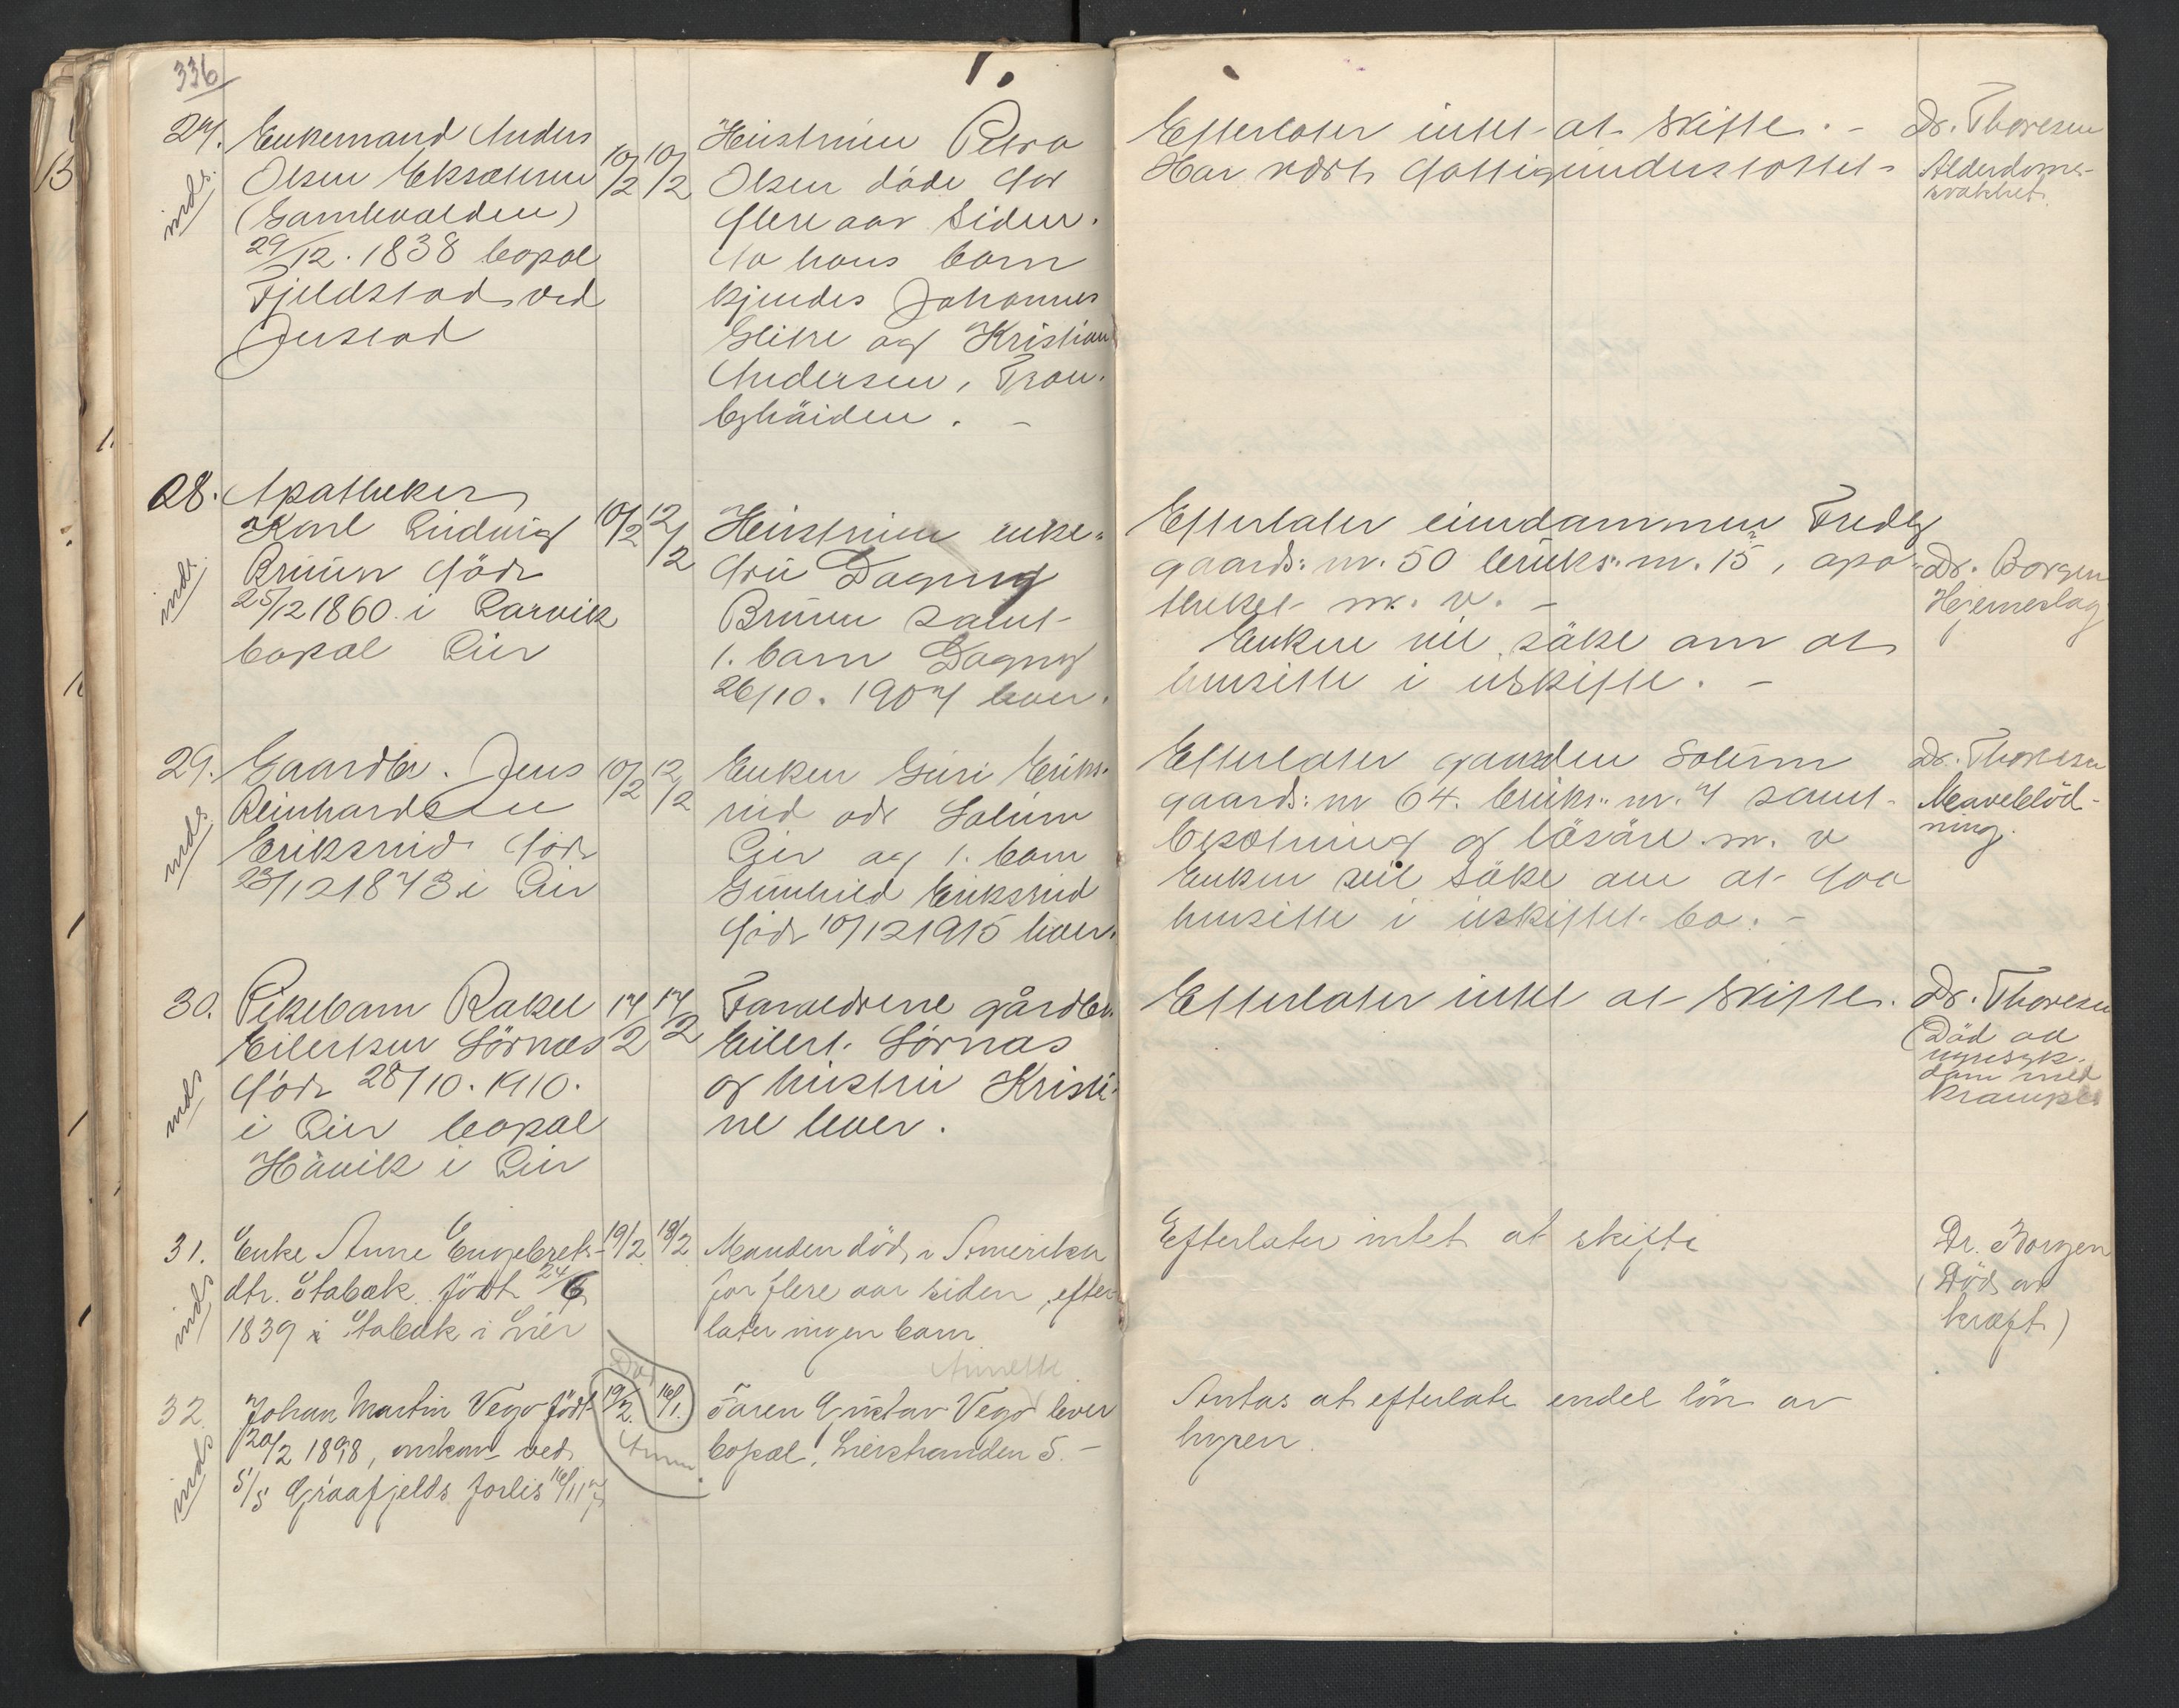 336
27. Enkemand Anders
Olsen Eksæteren 10/2 10/2
inds.
29/12. 1838 bopæl
Fjeldstad ved
Justad
Hustruen Petra
Olsen döde for
flere aar siden.
Av hans barn
kjendes Johannes
Glitre og Kristian
Andersen, Tran-
byhäiden. -
Efterlater intet at skifte. -
Har vært fattigunderstöttet -
Dr. Thoresen
Alderdoms-
svakhet.
28. Apotheker
Karl Ludvig 10/2 12/2
Bruun född
inds.
25/12 1860 i Larvik
bopæl Lier
Hustruen enke-
fru Dagny
Bruun samt
1. barn Dagny
26/10. 1907 lever.
Efterlater eiendommen Fredly
gaards: nr. 50 bruks: nr. 15, apo-
theket m. v. -
Enken vil söke om at
hensitte i uskifte. -
Dr. Borgen
Hjerneslag
29. Gaardbr. Jens 10/2 12/2
Reinhardsen
inds.
Eriksrud född
23/12 1873 i Lier
Enken Guri Eriks-
rud adr Solum
Lier og 1. barn
Gunhild Eriksrud
född 10/12 1915 lever.
Efterlater gaarden Solum
gaards: nr 64. bruks: nr. 7 samt
besætning og lösöre m. v
Enken vil söke om at faa
hensitte i uskiftet bo. -
Dr. Thoresen
Maveblöd-
ning.
30. Pikebarn Rakel 17/2 17/2
Eilertsen Sörnæs
inds
född 28/10. 1910.
i Lier bopæl
Håvik i Lier
Forældrene gårdbr.
Eilert Sörnæs
og hustru Kristi-
ne lever.
Efterlater intet at skifte.
Dr. Thoresen
(Död av
nyresyk-
dom med
kramper
31. Enke Anne Engebrets- 19/2 18/2
dtr. Stabæk född 24/6
inds
1839 i Stabæk i Lier
Manden död i Amerika
for flere aar siden, efter-
later ingen barn
Efterlater intet at skifte
Dr. Borgen
(Död av
kræft)
32. Johan Martin Vego född 19/2. 16/1.
20/2 1898, omkom ved
inds
S/S Graafjelds forlis 16/1 17
Annette
Faren Gustav Vego lever
bopæl, Lierstranden S. -
Antas at efterlate endel lön av
hyren.